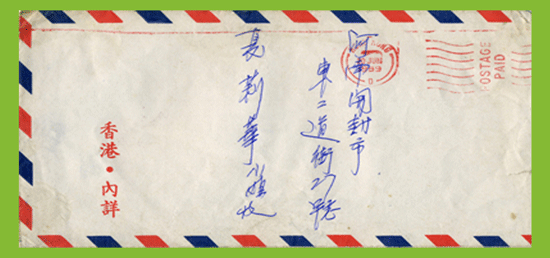 河南開封市
東二道街27號
夏莉華小姐收
香港・內詳
POSTAGE
PAID